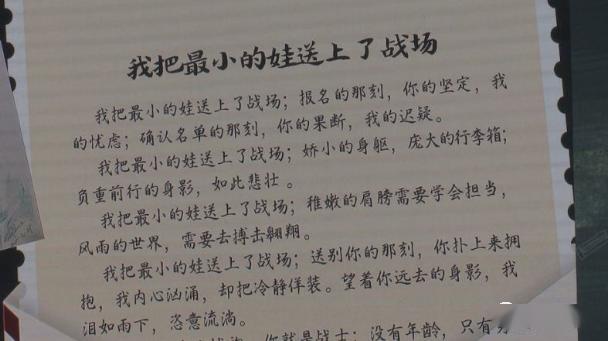 我把最小的娃送上了战场
我把最小的娃送上了战场；报名的那刻，你的坚定，我
的忧虑；确认名单的那刻，你的果断，我的迟疑。
我把最小的娃送上了战场；娇小的身躯，庞大的行李箱；
负重前行的身影，如此悲壮。
我把最小的娃送上了战场；稚嫩的肩膀需要学会担当，
风雨的世界，需要去搏击翱翔。
我把最小的娃送上了战场；送别你的那刻，你扑上来拥
抱，我内心汹涌，却把冷静佯装。望着你远去的身影，我
泪如雨下，恣意流淌。
你就是战士；没有年龄，只有